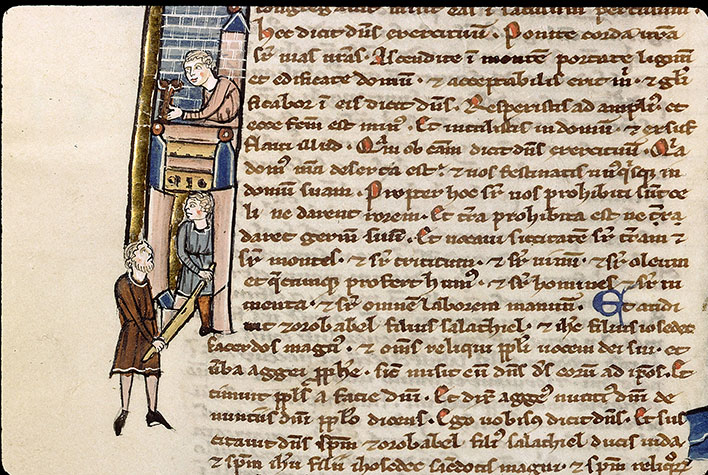 hec dicit dn̄s exercituum. Ponite corda vrā
sr̄ vias vrās. Ascendite ī montem portate lignum
et edificate domū. ⁊ acceptabilis erit m̄. ⁊ glī
ficabor ī eis dicit dn̄s. Respexistis ad ampliꝰ et
ecce fcm̄ est minꝰ. Et intulistis in domum. ⁊ exsuf
flaui illud. Qm̄ ob cām dicit dn̄s exercituum. Qa
domꝰ mea deserta est. ⁊ uos festinatis unꝰqisque in
domum suam. Propter hoc sr̄ uos prohibiti sunt ce
li ne darent rorem. Et tr̄a prohibita est ne
daret germen suū. Et uocaui siccitatē sr̄ trām ⁊
sr̄ montes. ⁊ sr̄ triticum. ⁊ sr̄ uinū. ⁊ sr̄ oleum
et quecumque profert humꝰ. ⁊ sr̄ homines ⁊ sr̄ iu
menta. ⁊ sr̄ omnem laborem manuum. Et audi
uit zorobabel filius salathiel. ⁊ ih̄s filius iosedec
sacerdos magnꝰ. ⁊ om̄s reliqui ppl̄i uocem dei sui. et
uerba aggei pp̄he. sic̄ misit eū dn̄s ds̄ eorū ad ipsos. Et
timuit ppl̄s a facie dn̄i. Et dix̄ aggeꝰ nuntiꝰ dn̄i de
nuntiis dn̄i ppl̄o dicens. Ego uobiscū dicit dn̄s. Et sus
citauit dn̄s spm̄ zorobabel filii salathiel ducis iuda.
⁊ spm̄ ih̄u filii iosedec sacdotis magni. ⁊ spm̄ reliqorꝝ